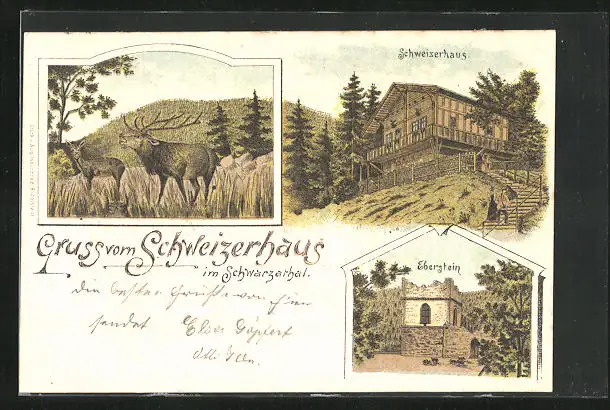 Schweizerhaus.
Gruss vom Schweizerhaus
im Schwarzathal.
Eberstein
die besten Grüße von hier
sendet Elsa Göpfert